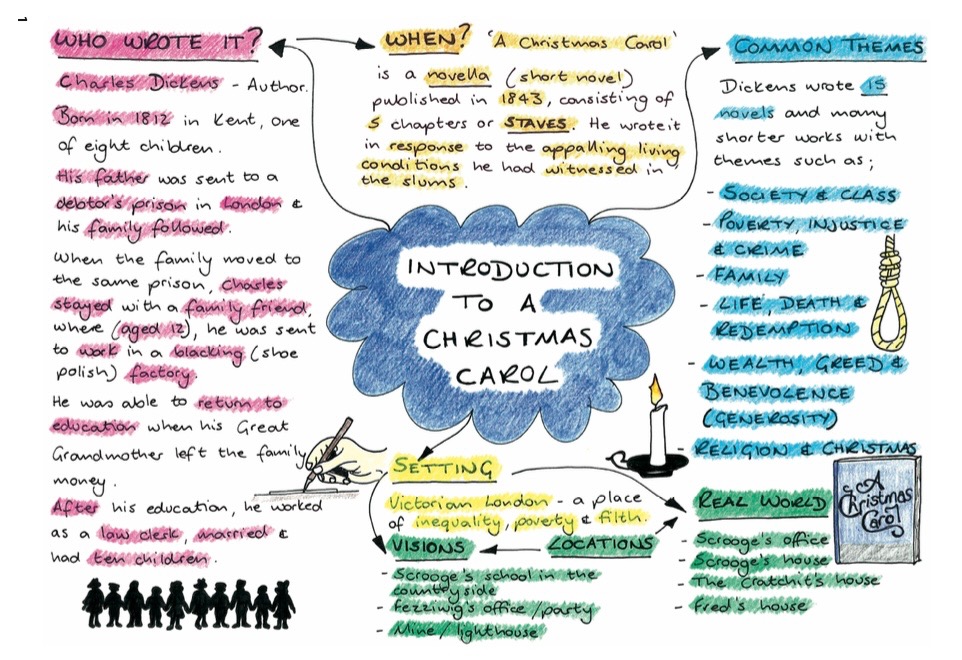 1
WHO WROTE IT?
Charles Dickens - Author.
Born in 1812 in Kent, one
of eight children.
His father was sent to a
debtor's prison in London &
his family followed.
When the family moved to
the same prison, Charles
stayed with a family friend,
where (aged 12), he was sent
to work in a blacking (shoe
polish) factory
He was able to return to
education when his Great
Grandmother left the family
money.
After his education, he worked
as a law clerk, married &
had ten children.
WHEN? 'A Christmas Carol'
is a novella (short novel)
published in 1843, consisting of
5 chapters or STAVES. He wrote it
in response to the appalling living
conditions he had witnessed in
the slums.
INTRODUCTION
TO A
CHRISTMAS
CAROL
COMMON THEMES
Dickens wrote 15
novels and many
shorter works with
themes such as;
- SOCIETY & CLASS
- POVERTY, INJUSTICE
& CRIME
- FAMILY
- LIFE, DEATH &
REDEMPTION
- WEALTH, GREED &
BENEVOLENCE
(GENEROSITY)
- RELIGION & CHRISTMAS
SETTING
Victorian London - a place
of inequality, poverty & filth.
VISIONS
LOCATIONS
- Scrooge's school in the
countryside
- Fezziwig's office/party
- Mine/lighthouse
REAL WORLD
- Scrooge's office
- Scrooge's house
- The Cratchit's house
- Fred's house
A
Christmas
Carol